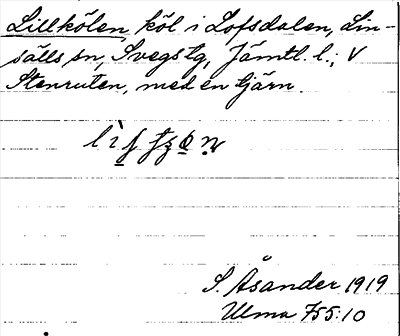 Lillkölen, köl i Lofsdalen, Lin-
sälls sn, Svegs tg, Jämtl. l.; V
Stenruten, med en tjärn.
S. Åsander 1919
Ulma 755:10